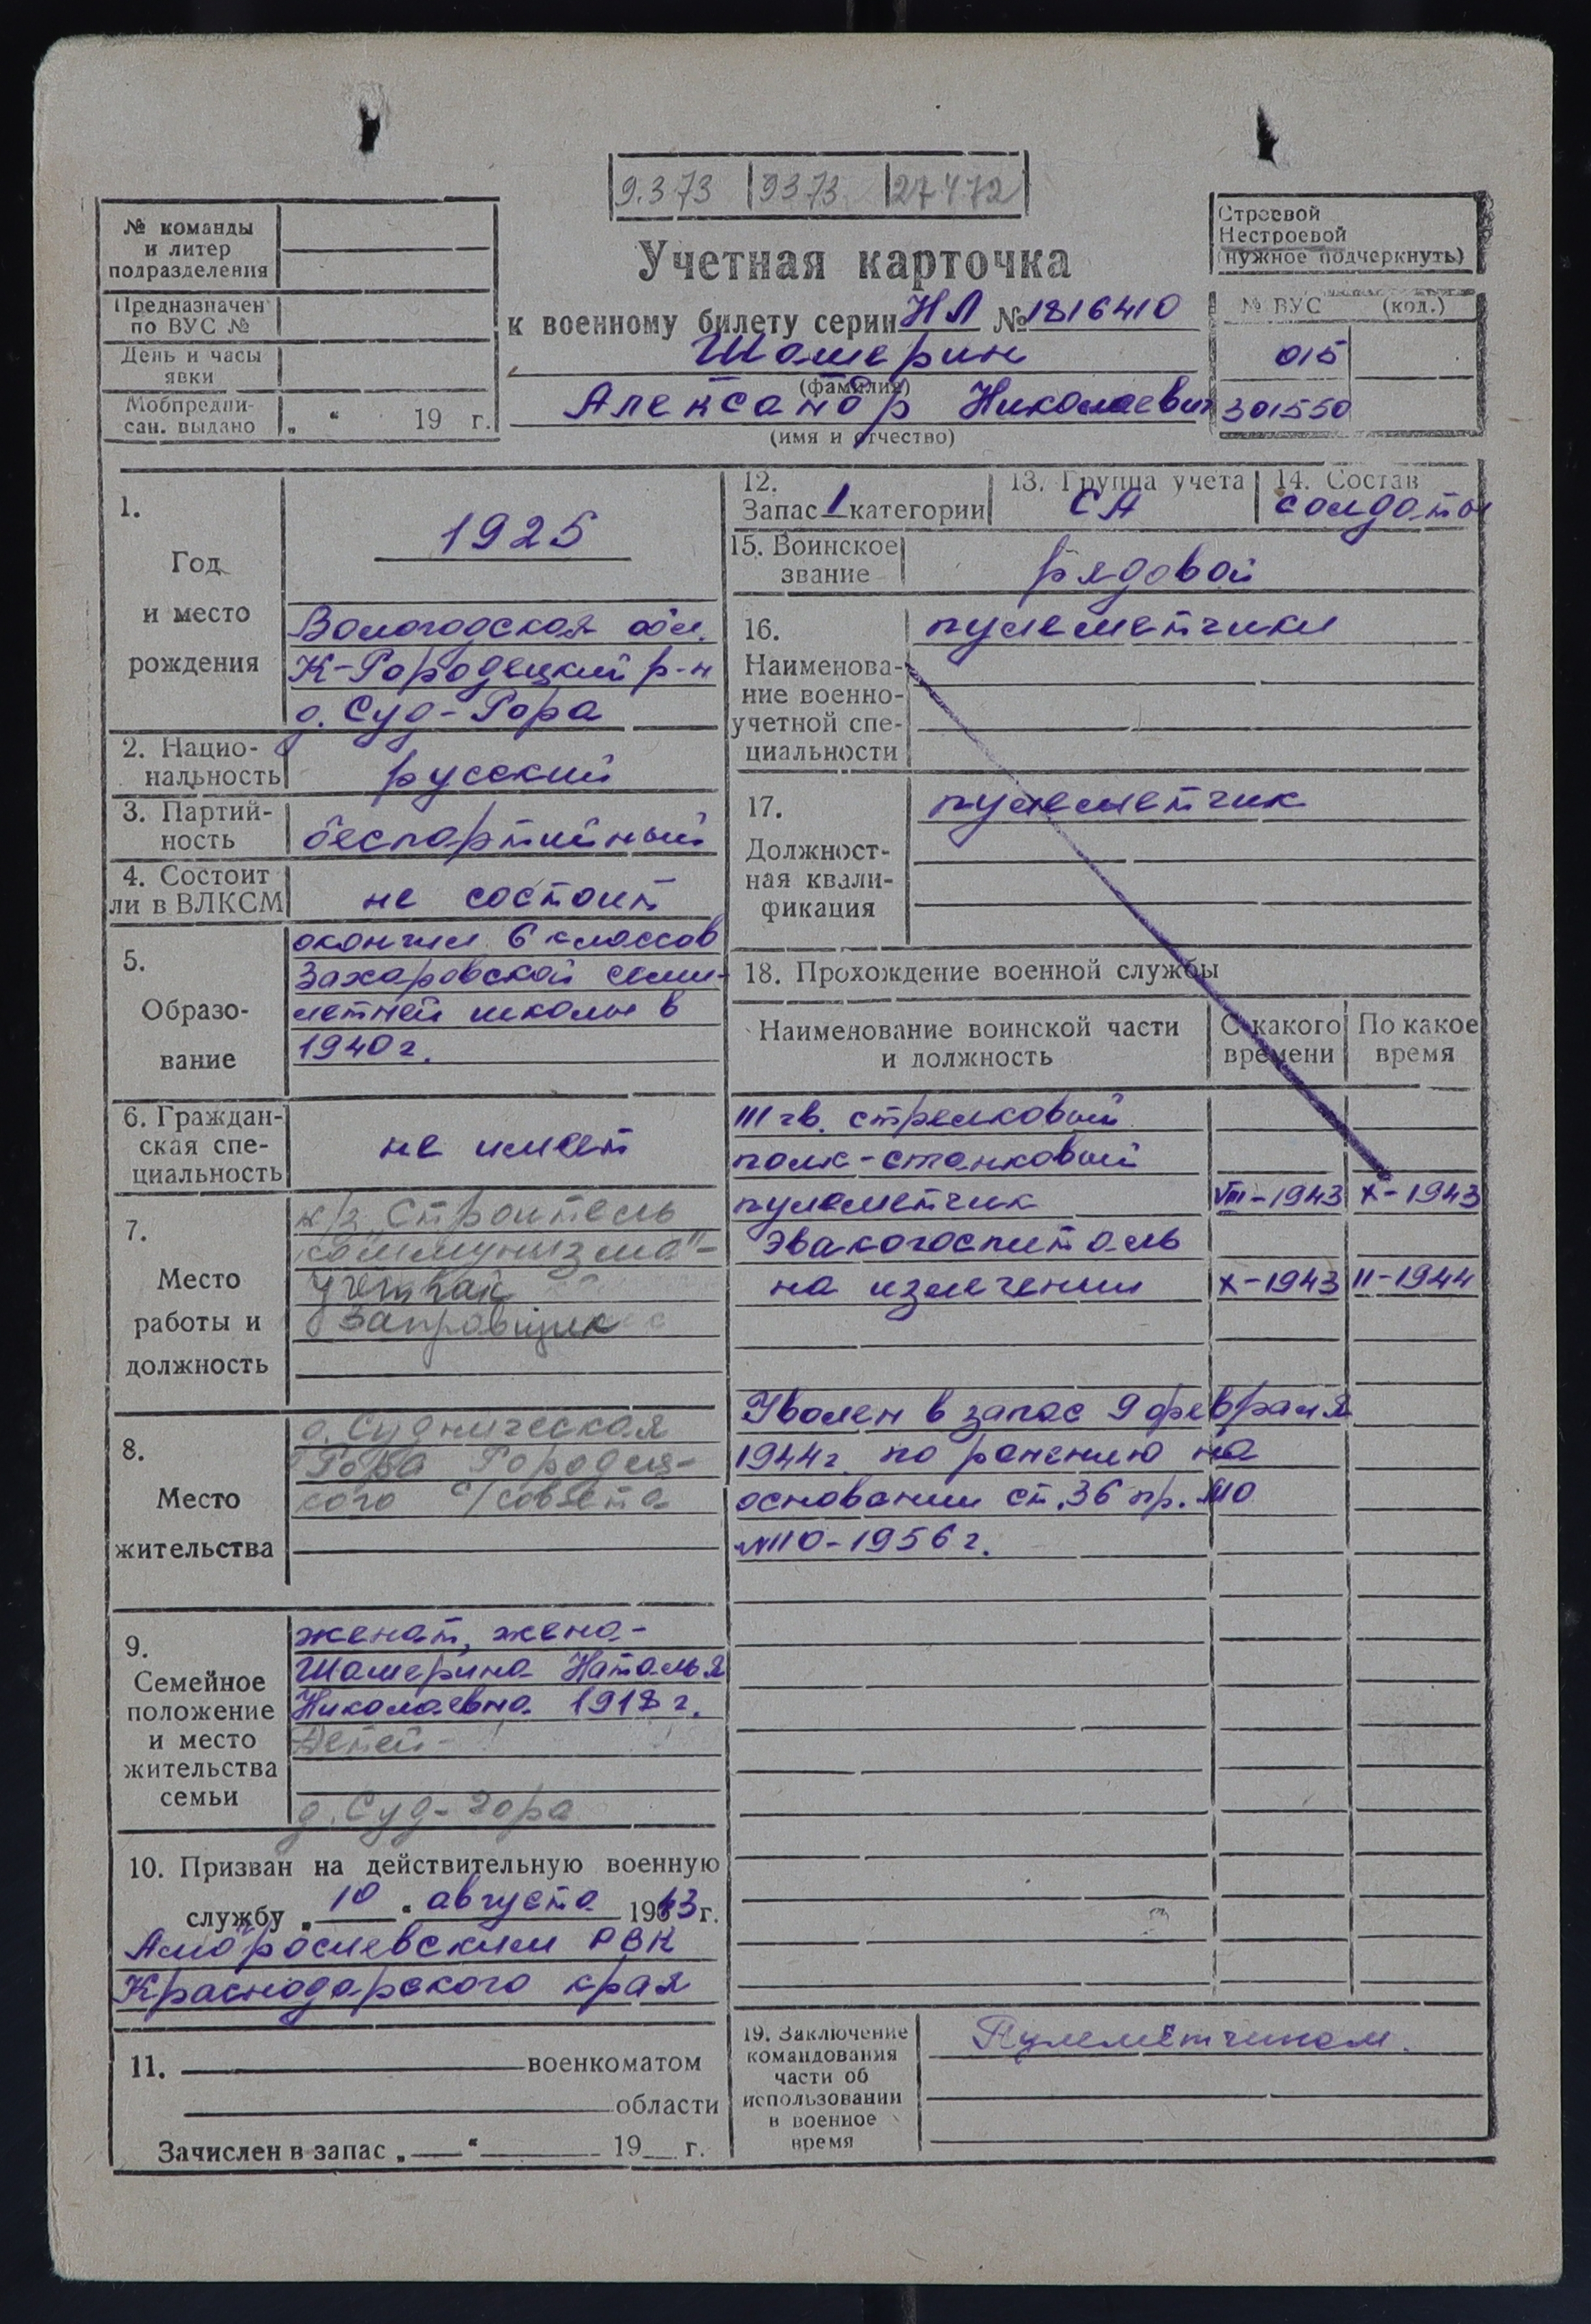 9.3.73 9373 27 4 72
№ команды
и литер
подразделения
Предназначен
по ВУС №
День и часы
явки
Мобпредпи-
сан. выдано „ “ 19 г.
Учетная карточка
к военному билету серии НЛ № 1816410
Шамерин
(фамилия)
Александр Николаевич
(имя и отчество)
Строевой
Нестроевой
(нужное подчеркнуть)
№ ВУС (код.)
015
301550
1.
Год
и место
рождения
1925
Вологодская обл.
К-Городецкий р-н
д. Суд-Гора
2. Нацио-
нальность
русский
3. Партий-
ность
беспартийный
4. Состоит
ли в ВЛКСМ
не состоит
5.
Образо-
вание
окончил 6 классов
Захаровской семи-
летней школы в
1940 г.
6. Граждан-
ская спе-
циальность
не имеет
7.
Место
работы и
должность
к/з „Строитель
коммунизма"-
Заправщик
8.
Место
жительства
д. Судническая
Гора Городец-
кого с/совета
9.
Семейное
положение
и место
жительства
семьи
женат, жена-
Шамерина Наталья
Николаевна 1918 г.
Детей-
д. Суд-гора
10. Призван на действительную военную
службу „ 10 “ августа 1943 г.
Амбросиевским РВК
Краснодарского края
11. военкоматом
области
Зачислен в запас „ “ 19 г.
12.
Запас 1 категории
13. Группа учета
СА
14. Состав
солдаты
15. Воинское
звание
рядовой
16.
Наименова-
ние военно-
учетной спе-
циальности
пулеметчики
17.
Должност-
ная квали-
фикация
пулеметчик
18. Прохождение военной службы
Наименование воинской части
и должность
С какого
времени
По какое
время
III гв. стрелковый
полк-станковый
пулеметчик VIII-1943 X-1943
Эвакогоспиталь
на излечении X-1943 II-1944
Уволен в запас 9 февраля
1944 г. по ранению на
основании ст. 36 пр. МО
№110-1956 г.
19. Заключение
командования
части об
использовании
в военное
время
Пулеметчиком.